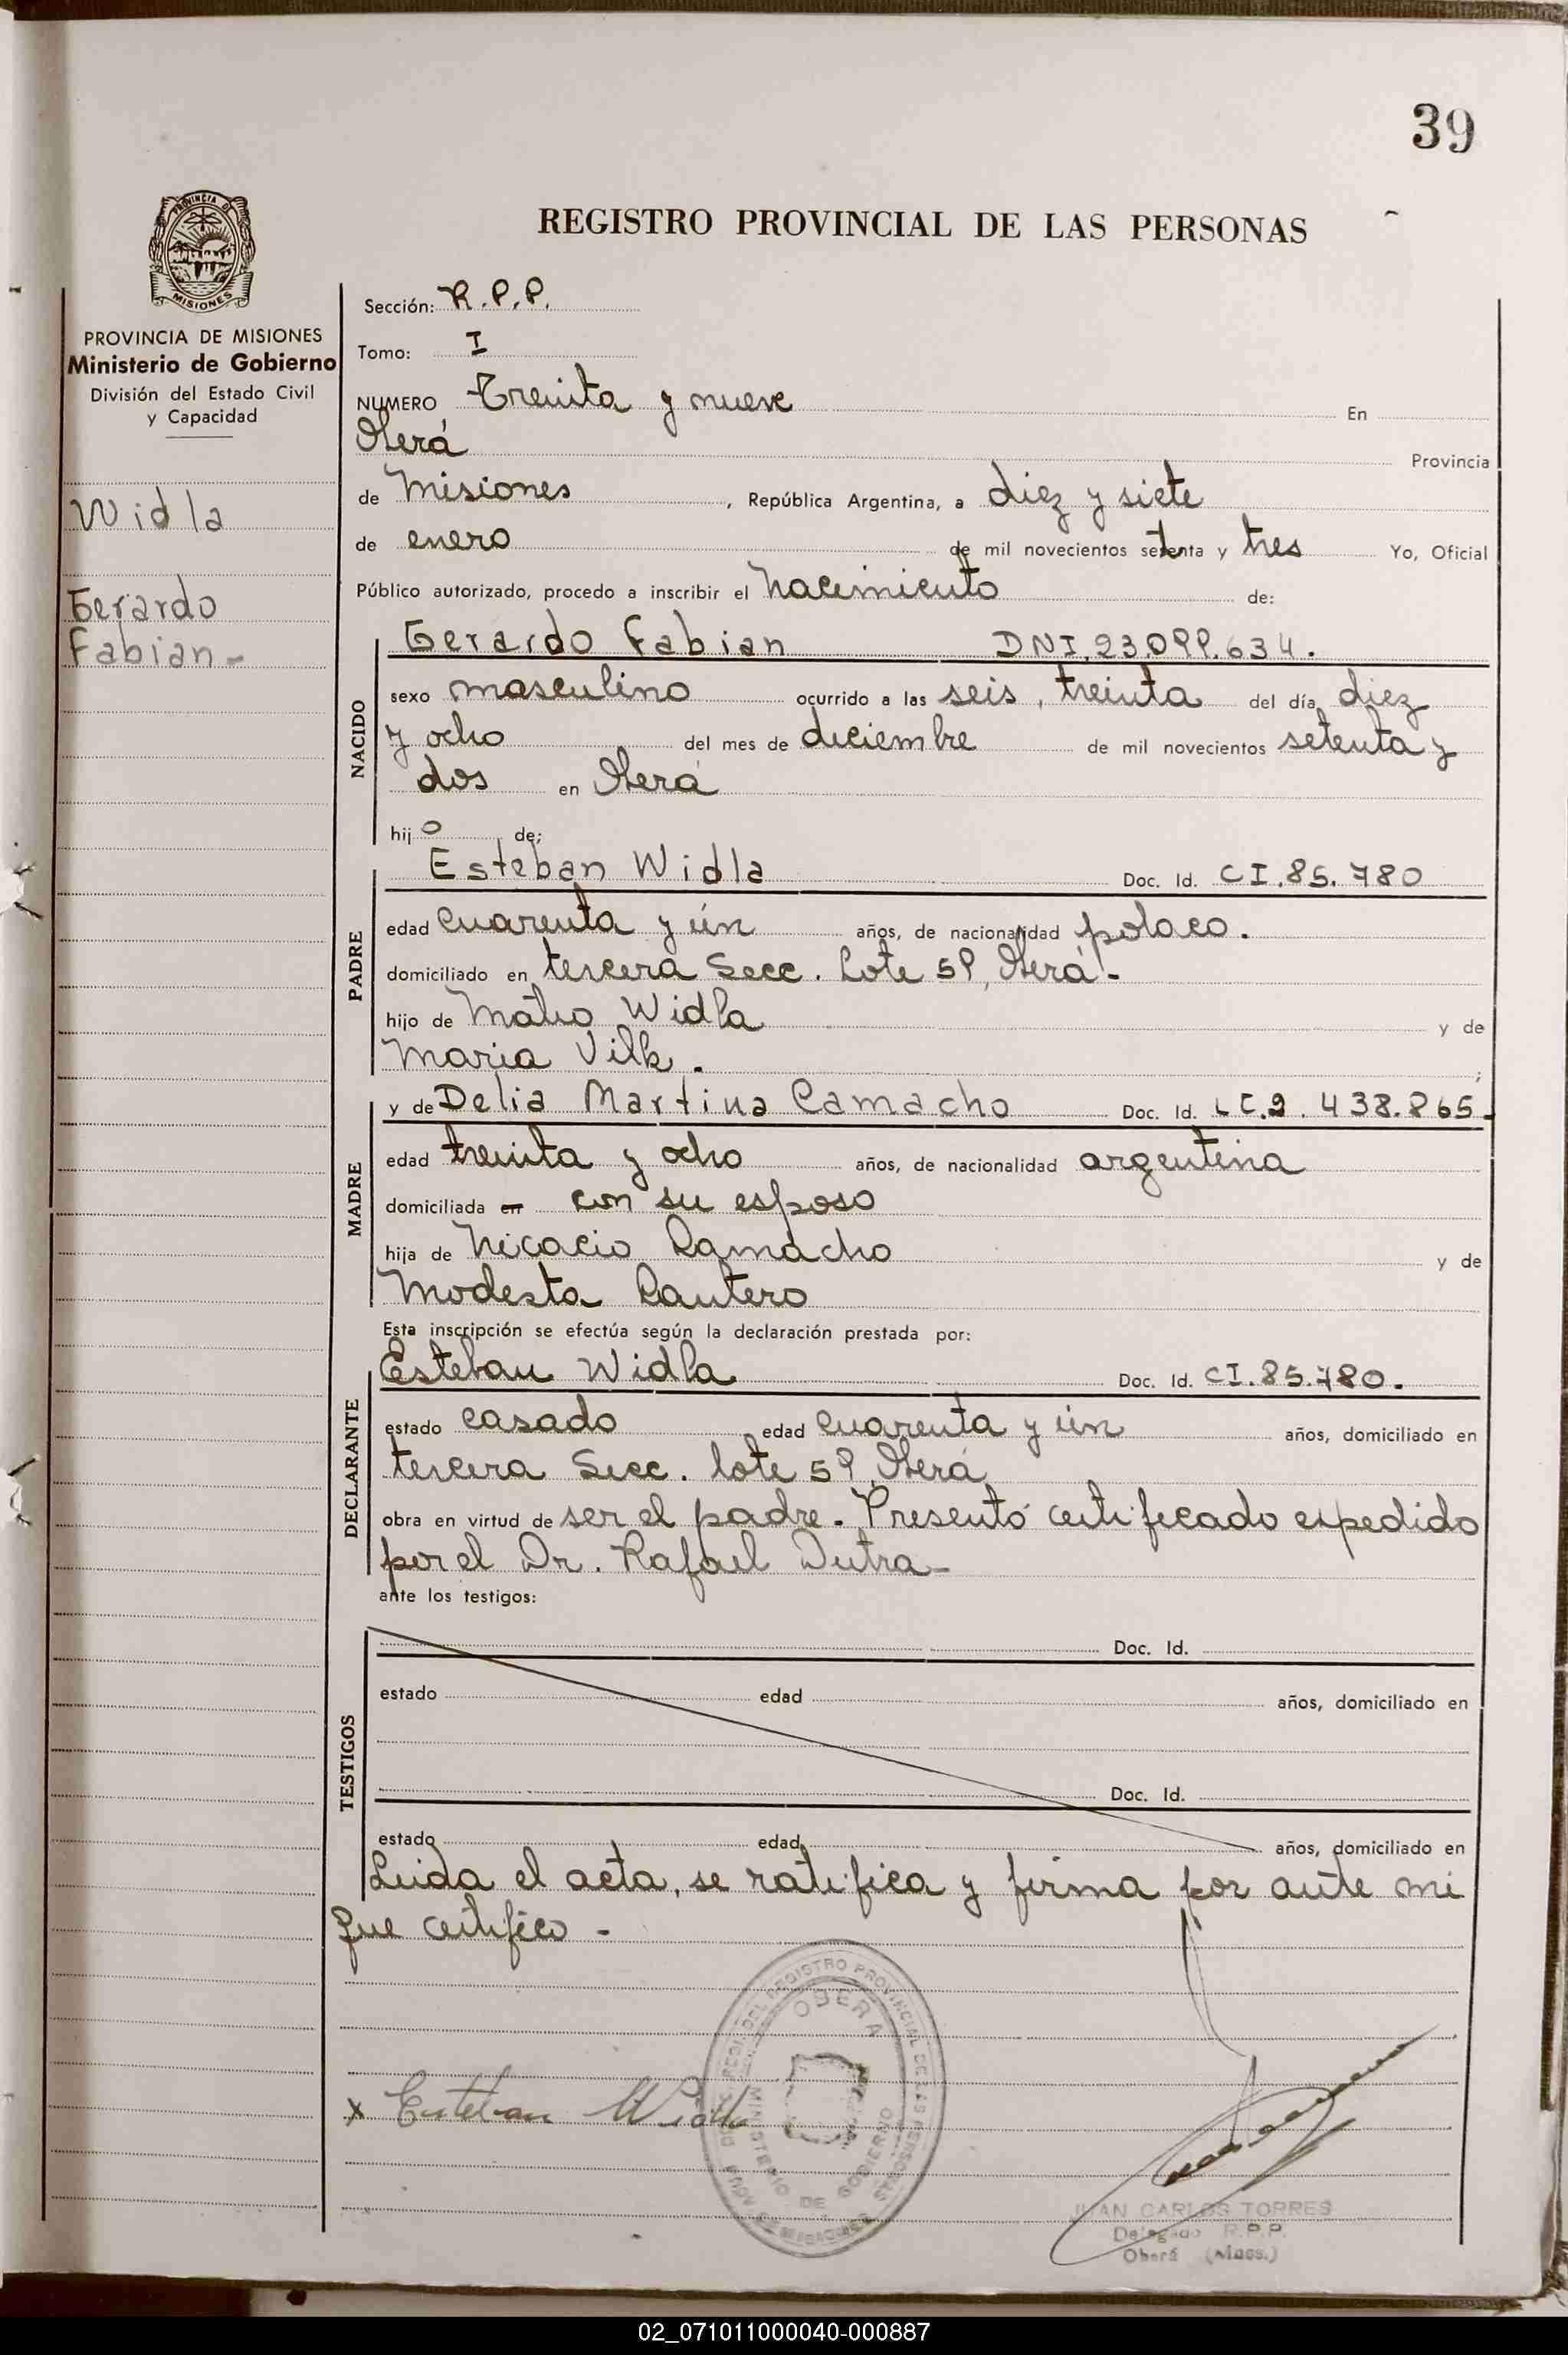 39
REGISTRO PROVINCIAL DE LAS PERSONAS
PROVINCIA DE
MISIONES
PROVINCIA DE MISIONES
Ministerio de Gobierno
División del Estado Civil
y Capacidad
Widla
Gerardo
Fabian-
Sección: R.P.P.
Tomo: I
NUMERO Treinta y nueve En
Oberá Provincia
de Misiones, República Argentina, a diez y siete
de enero de mil novecientos setenta y tres Yo, Oficial
Público autorizado, procedo a inscribir el nacimiento de:
NACIDO
Gerardo Fabian DNI.23.099.634.
sexo masculino ocurrido a las seis, treinta del día diez
y ocho del mes de diciembre de mil novecientos setenta y
dos en Oberá
hijo de:
PADRE
Esteban Widla Doc. Id. CI.85.780
edad cuarenta y ún años, de nacionalidad polaco.
domiciliado en tercera Secc. Lote 59, Oberá-
hijo de Matio Widla y de
Maria Vilk. ;
MADRE
y de Delia Martina Camacho Doc. Id. LC.9.438.865.
edad treinta y ocho años, de nacionalidad argentina
domiciliada en con su esposo
hija de Nicacio Camacho y de
Modesta Cantero
Esta inscripción se efectúa según la declaración prestada por:
DECLARANTE
Esteban Widla Doc. Id. CI.85.780.
estado casado edad cuarenta y ún años, domiciliado en
tercera Secc. lote 59, Oberá
obra en virtud de ser el padre. Presentó certificado expedido
por el Dr. Rafael Dutra-
ante los testigos:
TESTIGOS
Doc. Id.
estado edad años, domiciliado en
Doc. Id.
estado edad años, domiciliado en
Leida el acta, se ratifica y firma por ante mi
que certifico -
x Esteban Widla
REGISTRO PROVINCIAL DE LAS PERSONAS
OBERA
MINISTERIO DE GOBIERNO
JUAN CARLOS TORRES
Delegado R.P.P.
Oberá (Mnes.)
02_071011000040-000887